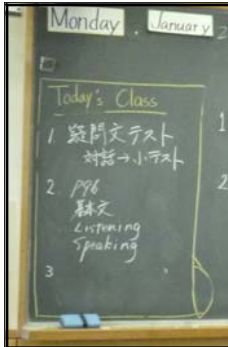 Monday, January 2
Today's Class
1 疑問文テスト
対話→小テスト
2. P96
基本文
Listening
Speaking
3
1
2